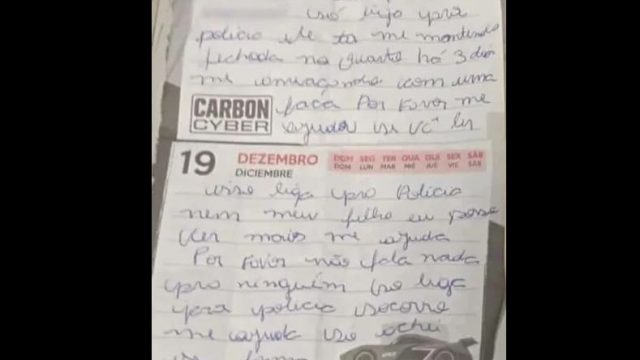 só liga pra
policia ele ta me mantendo
fechada no quarto há 3 dia
me ameaçando com uma
CARBON CYBER faca Por Favor me
ajudar se vc ler
19 DEZEMBRO DOM SEG TER QUA QUI SEX SÁB
DICIEMBRE DOM LUN MAR MIÉ JUE VIE SÁB
isso liga pra Policia
nem meu filho eu posso
ver mais me ajuda
Por Favor não fala nada
pra ninguém só liga
para policia socorro
me ajuda só achei